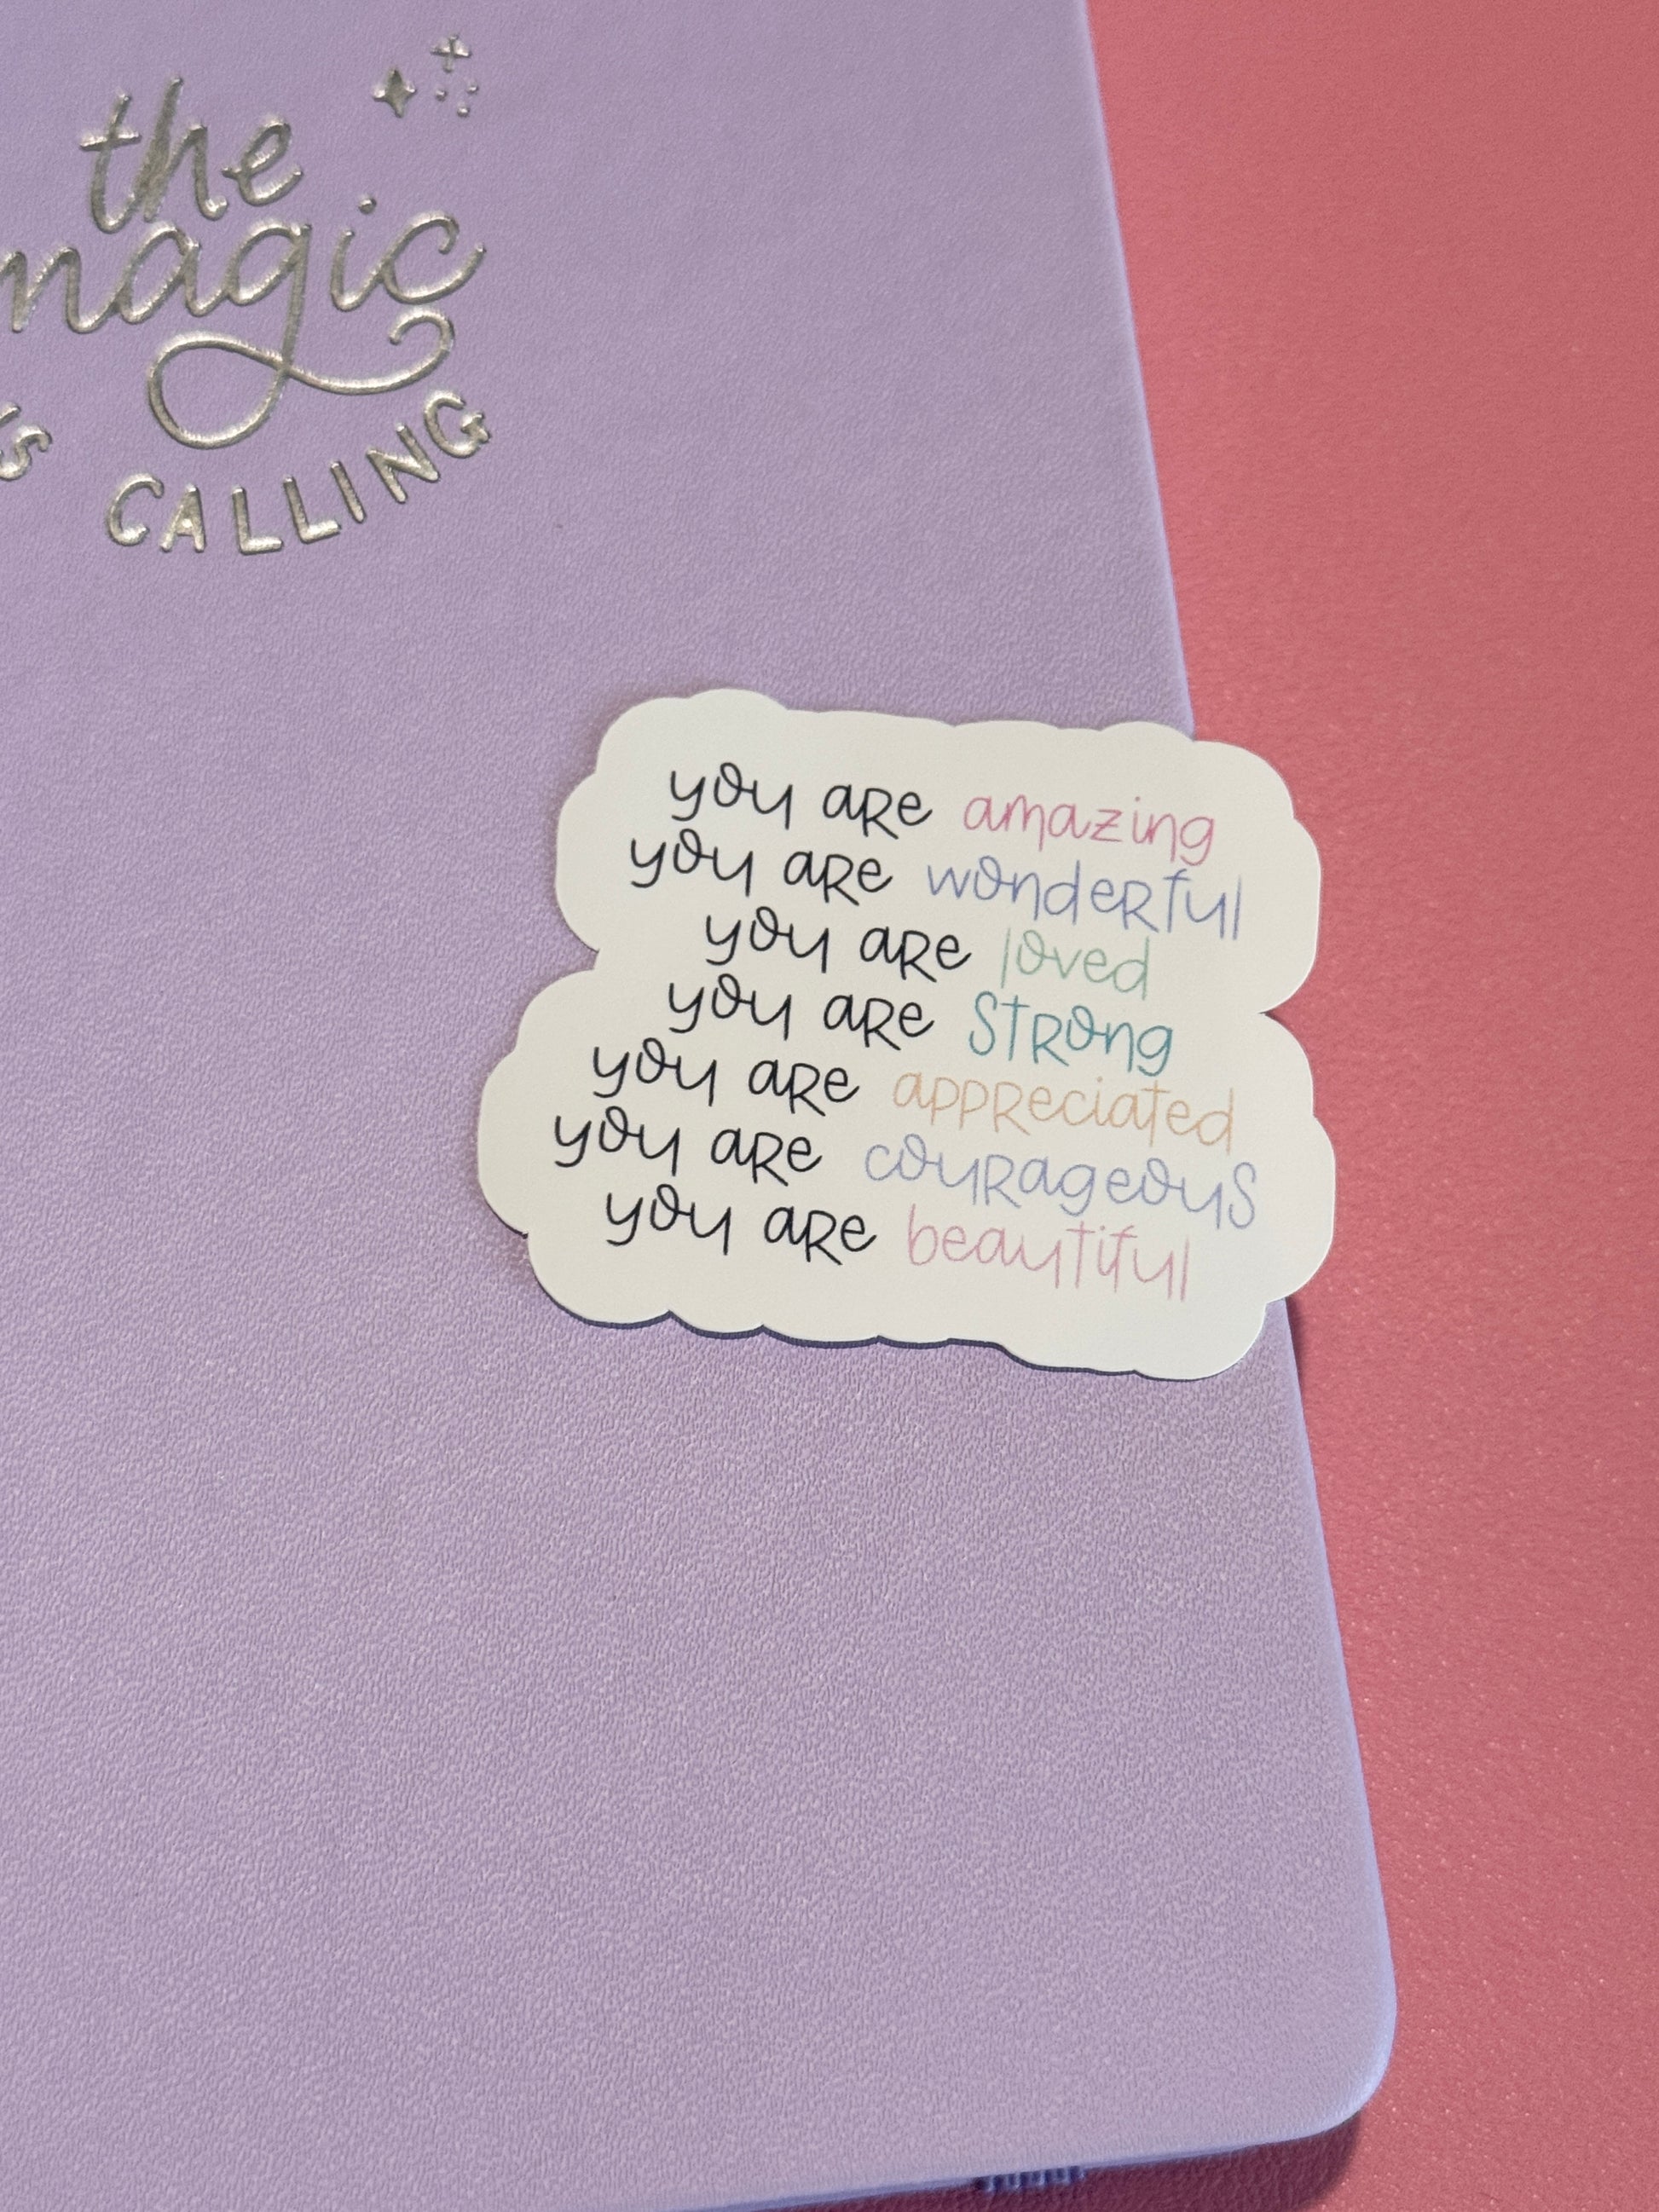 the
magic
is CALLING
you are amazing
you are wonderful
you are loved
you are strong
you are appreciated
you are courageous
you are beautiful